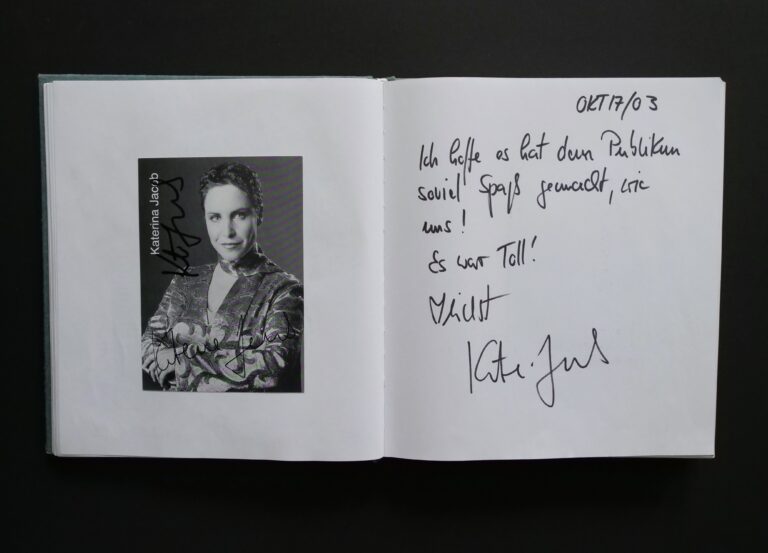 Katerina Jacob
OKT 17/03
Ich hoffe es hat dem Publikum
soviel Spaß gemacht, wie
uns!
Es war Toll!